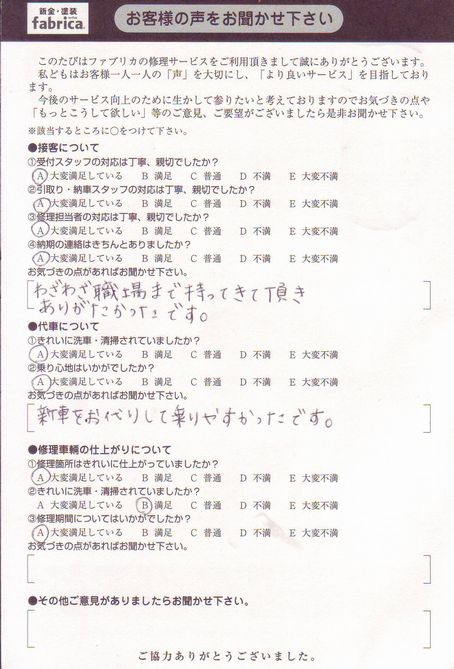 鈑金・塗装
fabrica.
お客様の声をお聞かせ下さい
このたびはファブリカの修理サービスをご利用頂きまして誠にありがとうございます。
私どもはお客様一人一人の「声」を大切にし、「より良いサービス」を目指しており
ます。
今後のサービス向上のために生かして参りたいと考えておりますのでお気づきの点や
「もっとこうして欲しい」等のご意見、ご要望がございましたら是非お聞かせ下さい。
※該当するところに○をつけて下さい。
●接客について
①受付スタッフの対応は丁寧、親切でしたか？
A 大変満足している B 満足 C 普通 D 不満 E 大変不満
②引取り・納車スタッフの対応は丁寧、親切でしたか？
A 大変満足している B 満足 C 普通 D 不満 E 大変不満
③修理担当者の対応は丁寧、親切でしたか？
A 大変満足している B 満足 C 普通 D 不満 E 大変不満
④納期の連絡はきちんとありましたか？
A 大変満足している B 満足 C 普通 D 不満 E 大変不満
お気づきの点があればお聞かせ下さい。
わざわざ職場まで持ってきて頂き
ありがたかったです。
●代車について
①きれいに洗車・清掃されていましたか？
A 大変満足している B 満足 C 普通 D 不満 E 大変不満
②乗り心地はいかがでしたか？
A 大変満足している B 満足 C 普通 D 不満 E 大変不満
お気づきの点があればお聞かせ下さい。
新車をお代りして乗りやすかったです。
●修理車輌の仕上がりについて
①修理箇所はきれいに仕上がっていましたか？
A 大変満足している B 満足 C 普通 D 不満 E 大変不満
②きれいに洗車・清掃されていましたか？
A 大変満足している B 満足 C 普通 D 不満 E 大変不満
③修理期間についてはいかがでしたか？
A 大変満足している B 満足 C 普通 D 不満 E 大変不満
お気づきの点があればお聞かせ下さい。
●その他ご意見がありましたらお聞かせ下さい。
ご協力ありがとうございました。